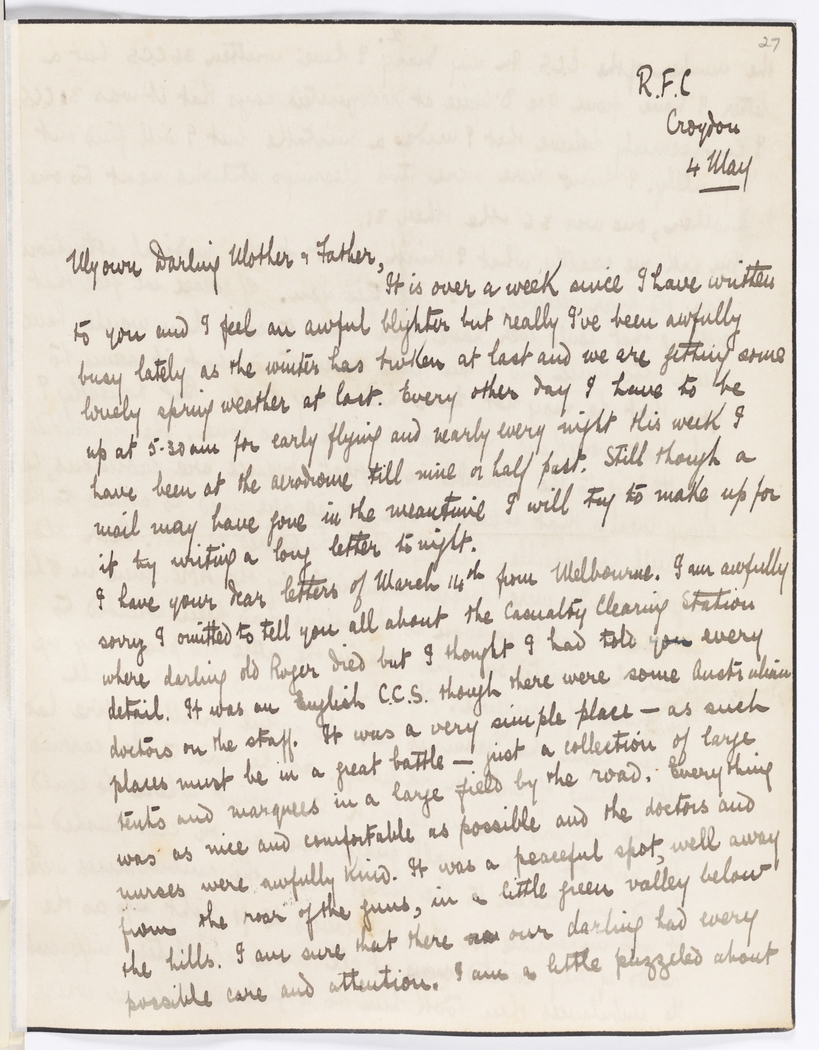 27
R.F.C
Croydon
4 May
My own Darling Mother & Father,
It is over a week since I have written
to you and I feel an awful blighter but really I've been awfully
busy lately as the winter has broken at last and we are getting some
lovely spring weather at last. Every other day I have to be
up at 5-30 am for early flying and nearly every night this week I
have been at the aerodrome till nine or half past. Still though a
mail may have gone in the meantime I will try to make up for
it by writing a long letter tonight.
I have your dear letters of March 14th from Melbourne. I am awfully
sorry I omitted to tell you all about the Casualty Clearing Station
where darling old Roger died but I thought I had told you every
detail. It was an English C.C.S. though there were some Australian
doctors on the staff. It was a very simple place — as such
places must be in a great battle — just a collection of large
tents and marquees in a large field by the road. Everything
was as nice and comfortable as possible and the doctors and
nurses were awfully kind. It was a peaceful spot, well away
from the roar of the guns, in a little green valley below
the hills. I am sure that there our darling had every
possible care and attention. I am a little puzzled about